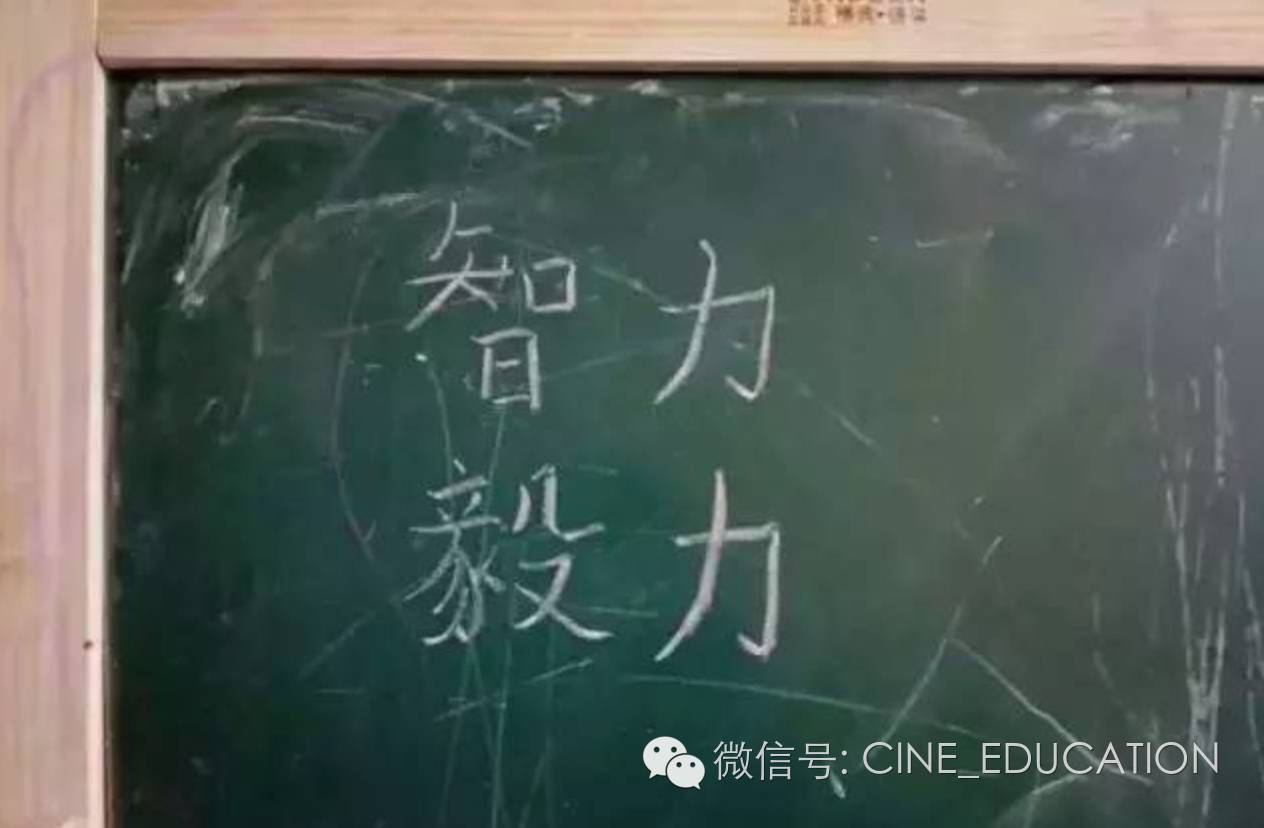 智力
毅力
微信号: CINE_EDUCATION